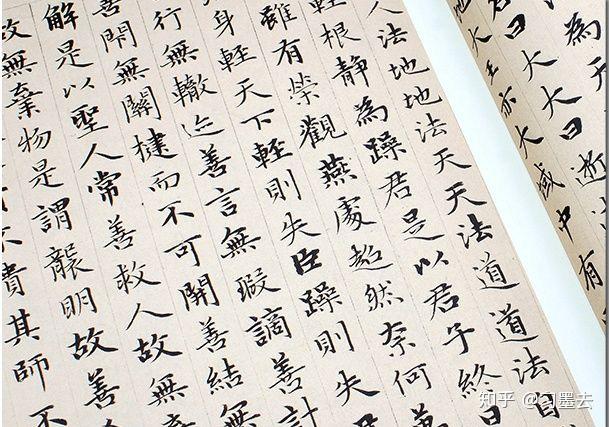 為天
曰大大曰逝
地大王亦大域中有
人法地地法天天法道道法自
輕根靜為躁君是以君子終日
雖有榮觀燕處超然奈何萬
身輕天下輕則失臣躁則失君
行無轍迹善言無瑕謫善計
善閉無關楗而不可開善結無
解是以聖人常善救人故無
故無棄物是謂襲明故善
貴其師不
知乎